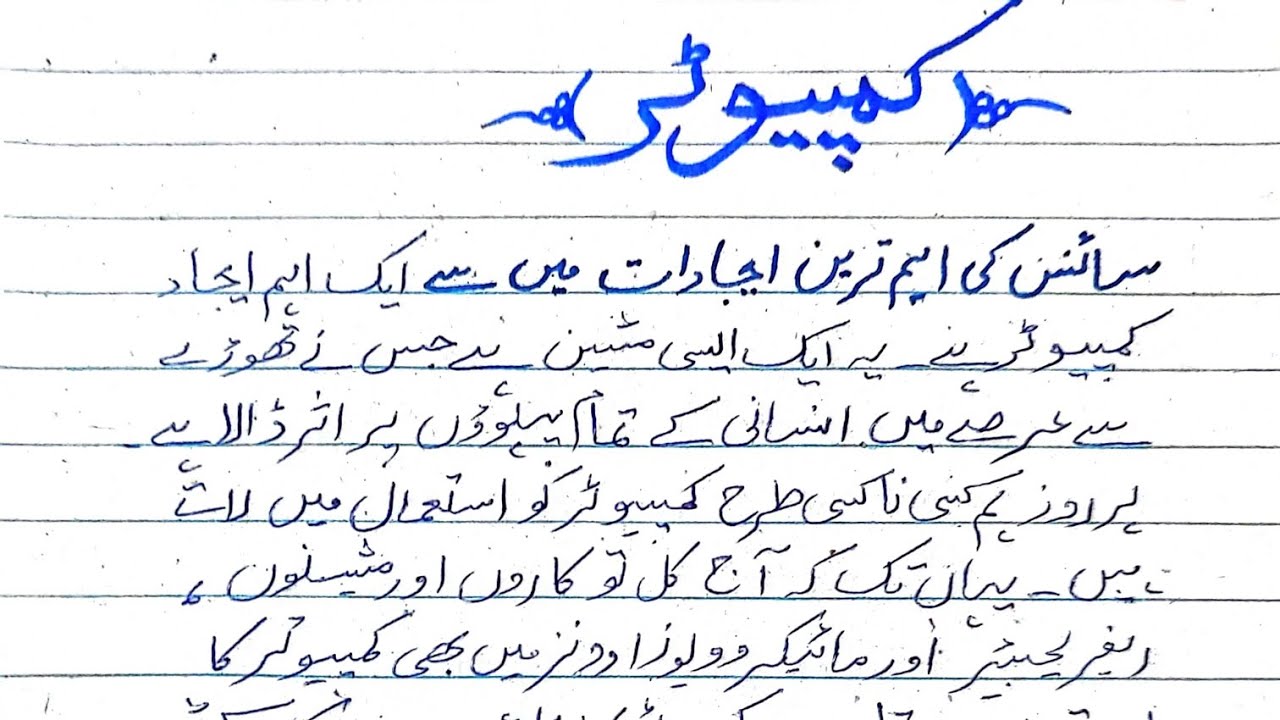 کمپیوٹر
سائنس کی اہم ترین ایجادات میں سے ایک اہم ایجاد
کمپیوٹر ہے۔ یہ ایک ایسی مشین ہے جس نے تھوڑے
سے عرصے میں انسانی کے تمام پہلوؤں پر اثر ڈالا ہے۔
ہر روز ہم کسی نا کسی طرح کمپیوٹر کو استعمال میں لاتے
ہیں۔ یہاں تک کہ آج کل تو کاروں اور مشینوں،
ریفریجیٹر اور مائیکرو ویوز اوونز میں بھی کمپیوٹر کا